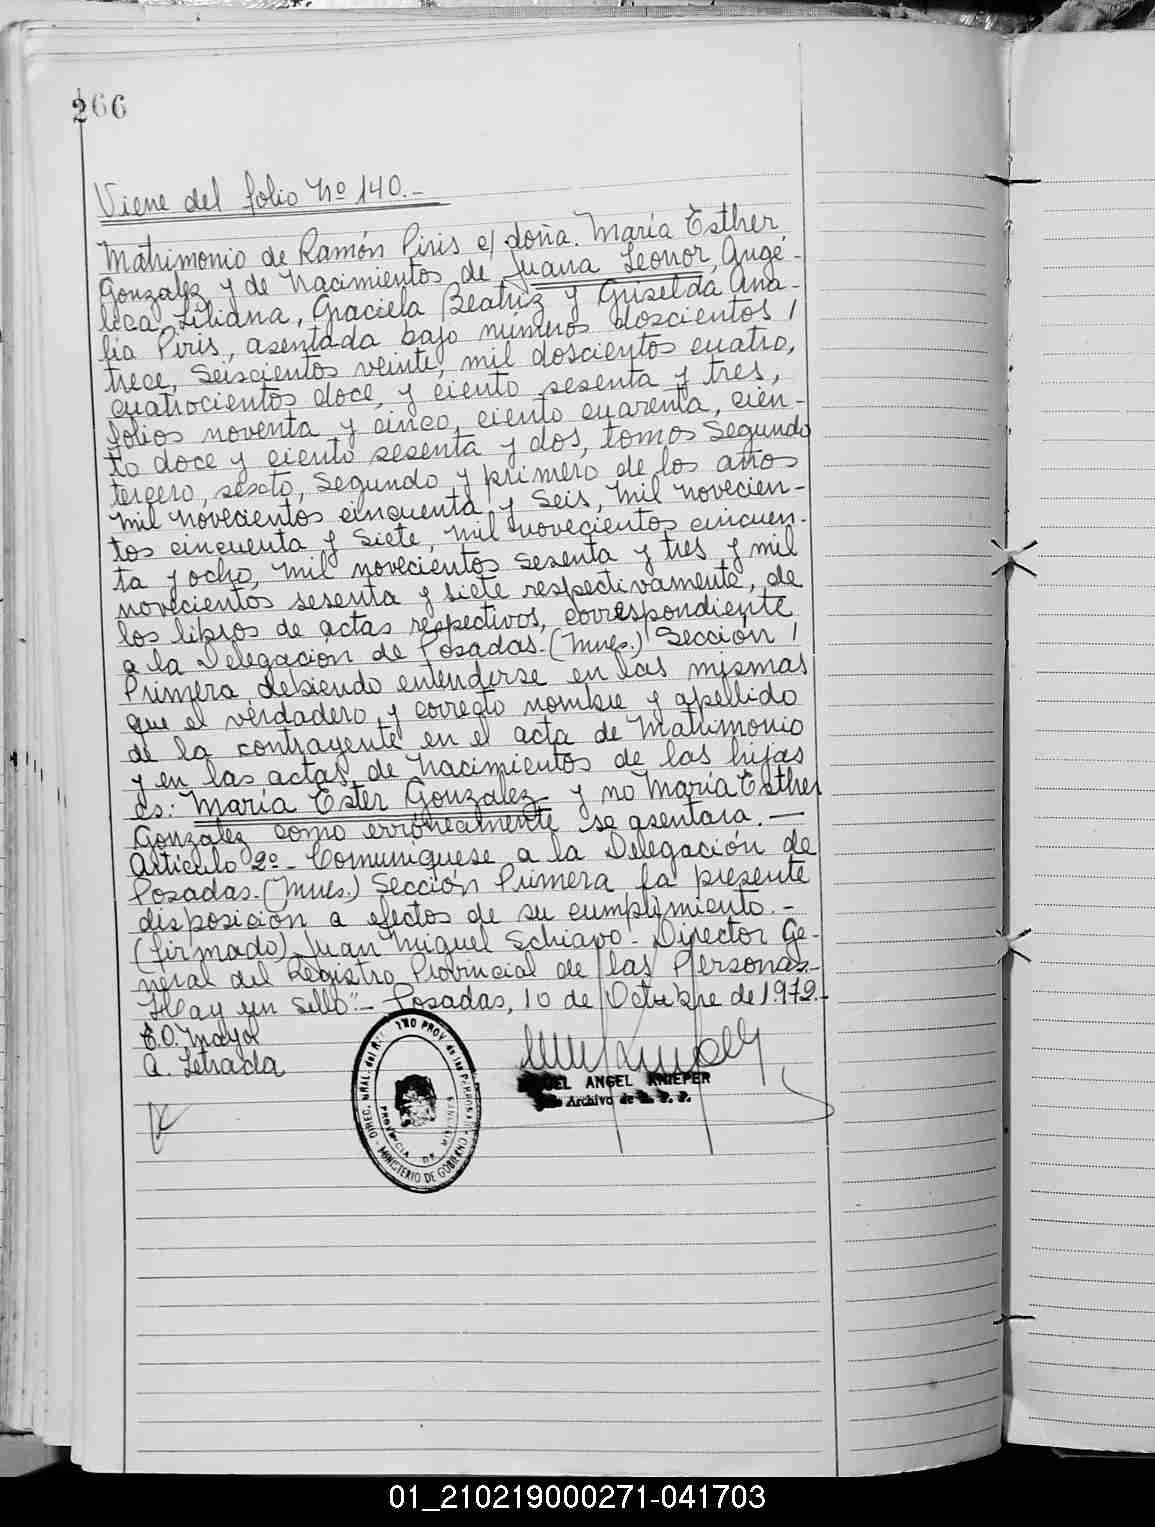 266
Viene del folio Nº 140.-
Matrimonio de Ramón Piris c/ doña. María Esther
Gonzalez y de Nacimientos de Juana Leonor, Angé-
lica Liliana, Graciela Beatriz y Griselda Ana-
lia Piris, asentada bajo números doscientos /
trece, Seiscientos veinte, mil doscientos cuatro,
cuatrocientos doce, y ciento sesenta y tres,
folios noventa y cinco, ciento cuarenta, cien-
to doce y ciento sesenta y dos, tomos Segundo
tercero, sexto, Segundo y primero de los años
mil novecientos cincuenta y Seis, mil novecien-
tos cincuenta y Siete, mil novecientos cincuen-
ta y ocho, mil novecientos sesenta y tres y mil
novecientos sesenta y siete respectivamente, de
los libros de actas respectivos, correspondiente
a la Delegación de Posadas.-(Mnes.) Sección /
Primera debiendo entenderse en las mismas
que el verdadero y correcto nombre y apellido
de la contrayente en el acta de Matrimonio
y en las actas de Nacimientos de las hijas
es: María Ester Gonzalez y no María Esther
Gonzalez como erróneamente se asentara.—
Artículo 2º- Comuníquese a la Delegación de
Posadas.-(Mnes.) Sección Primera la presente
disposición a efectos de su cumplimiento.-
(firmado) Juan Miguel Schiavo- Director Ge-
neral del Registro Provincial de las Personas-
Hay un sello"- Posadas, 10 de Octubre de 1.972.-
C.O. Mayor
A. Letrada
ANGEL KNIEPER
Archivo de R. P. P.
PROV. de las PERSONAS
PROVINCIA DE MISIONES
MINISTERIO DE GOBIERNO
01_210219000271-041703